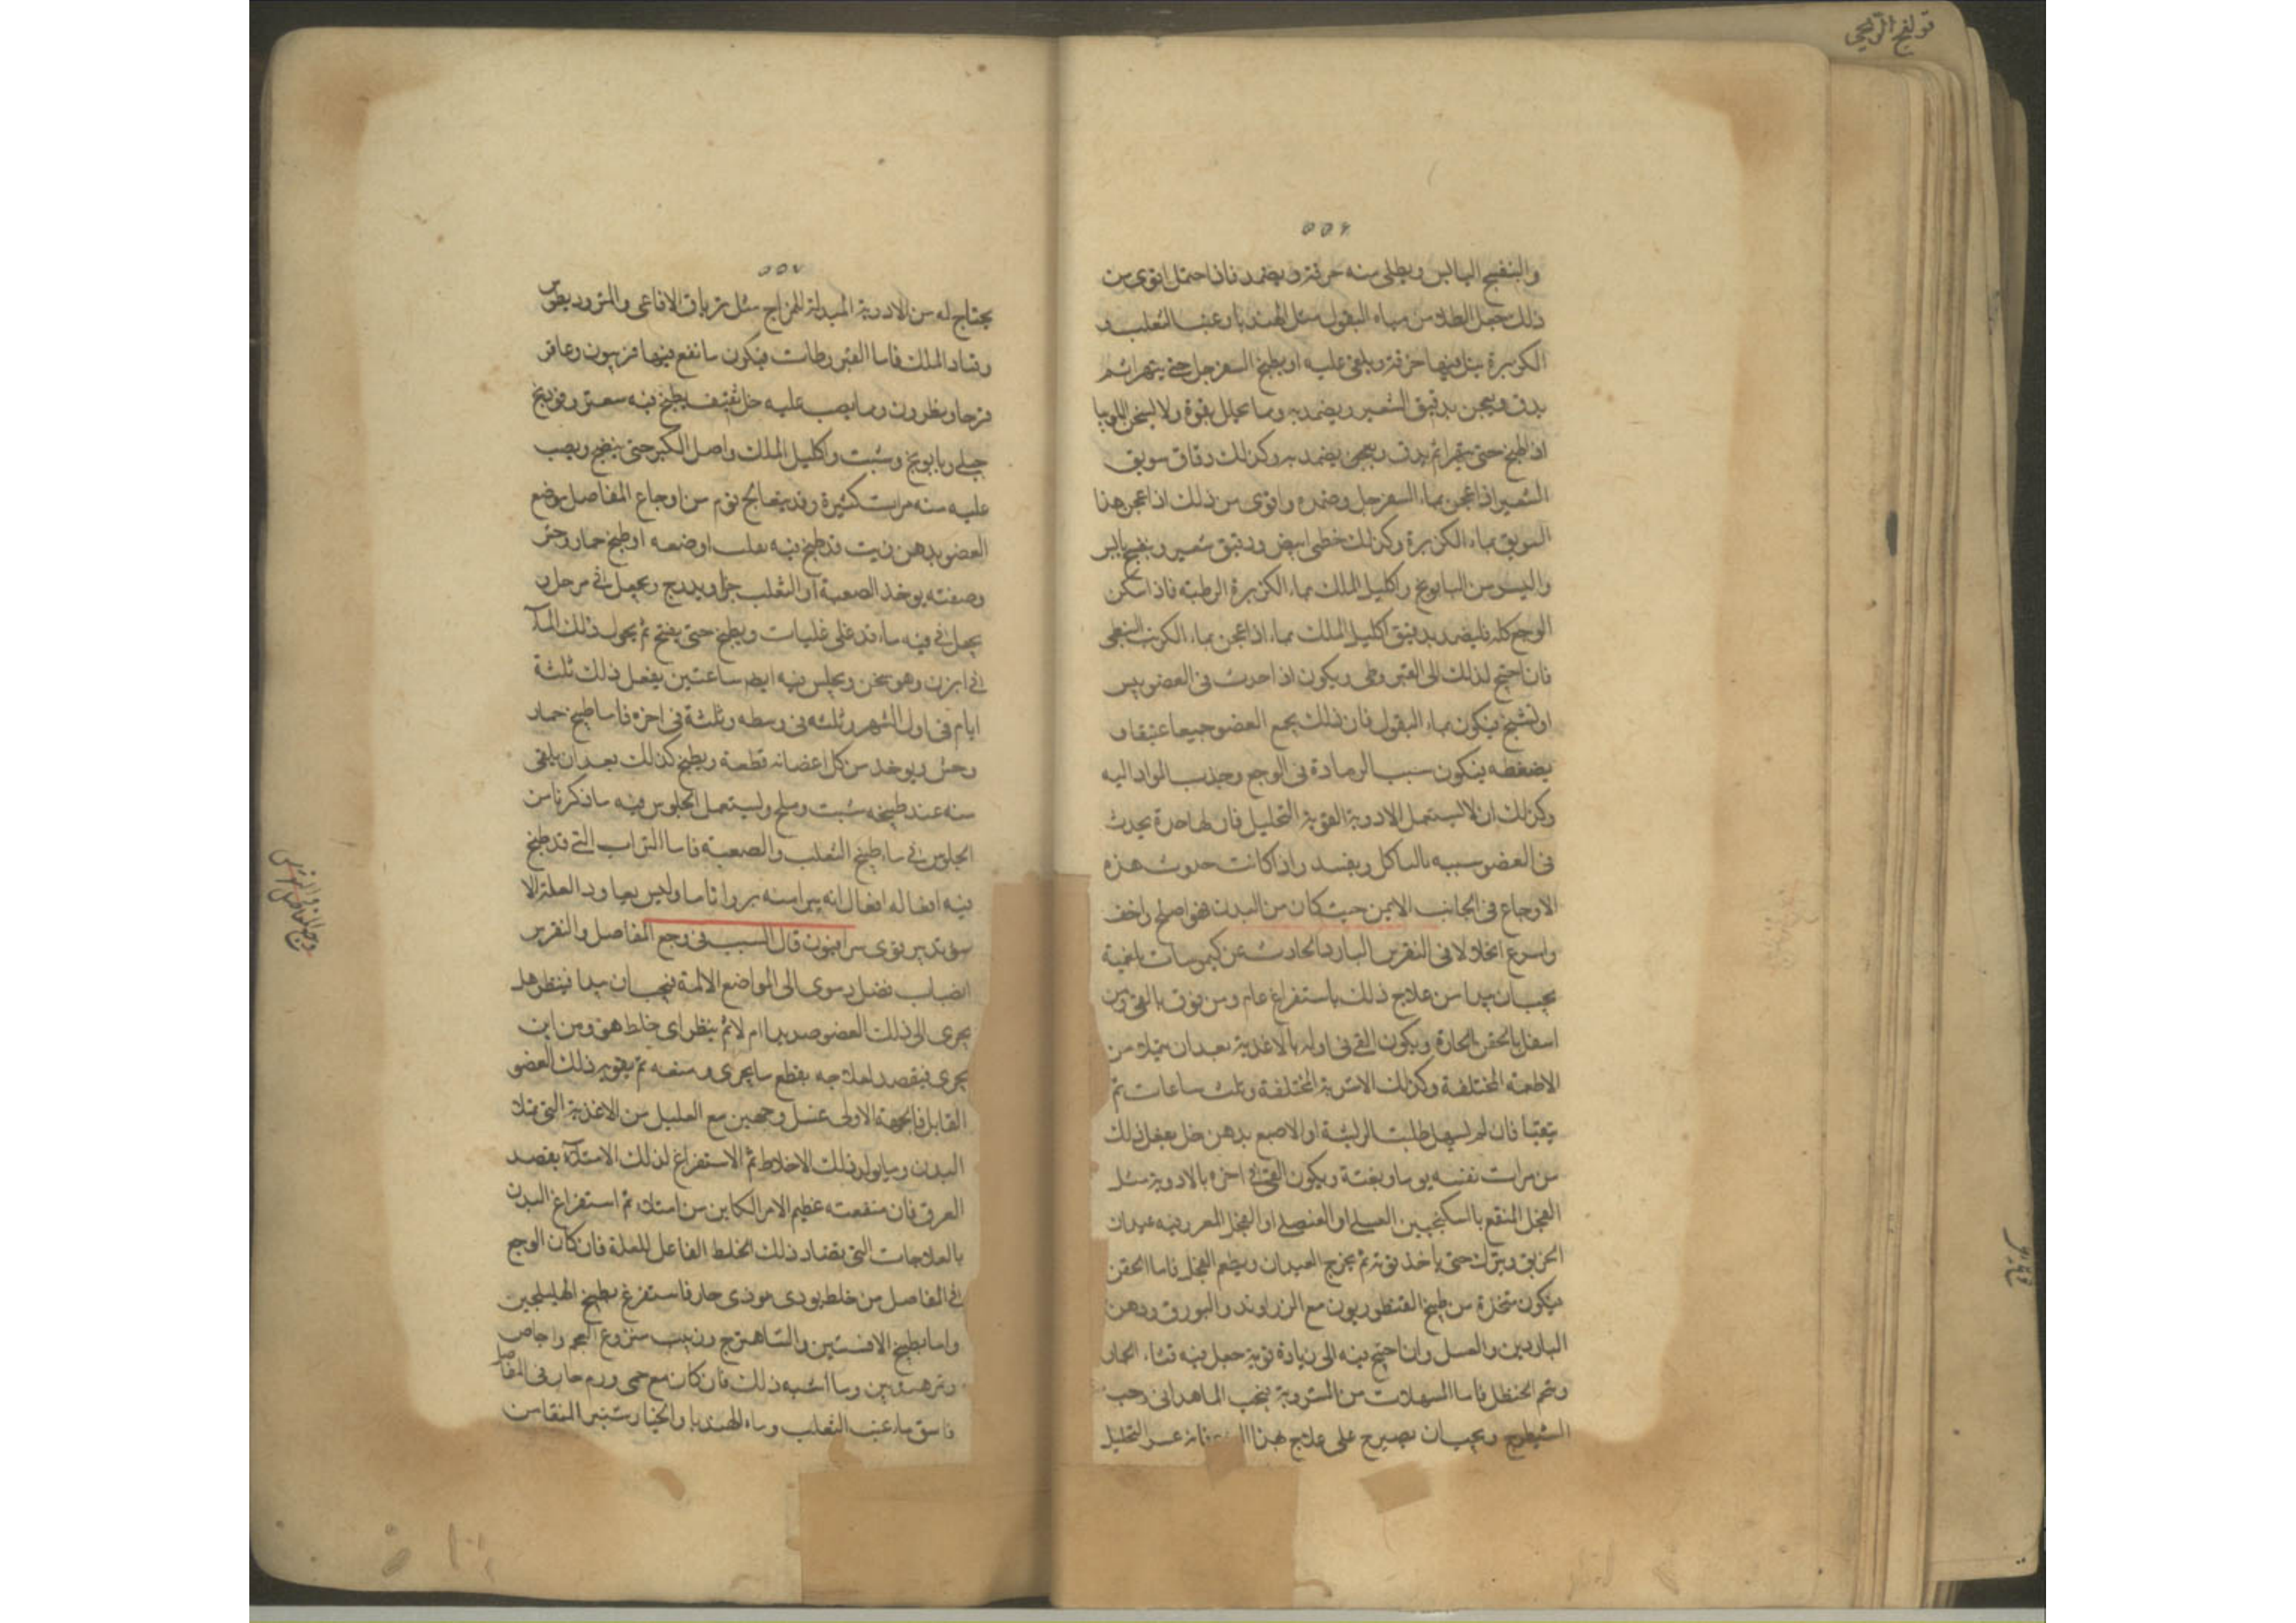 قولنج الريحي
٥٥٦
والبنفسج اليابس ويطلى منه خرقة ويضمد فاذا احتمل اقوى من
ذلك جعل الطلا من مياه البقول مثل الهندبا وعنب الثعلب و
الكزبرة يبل فيها خرقة ويلقى عليه او يطبخ السفرجل حتى يتهرا ثم
يدق ويعجن بدقيق الشعير ويضمد به ومما يحلل بقوة ولا يسخن اللوبيا
اذا طبخ حتى يتهرا ثم يدق ويعجن يضمد به وكذلك دقاق سويق
الشعير اذا عجن بماء السفرجل وضمده واقوى من ذلك اذا عجن هذا
السويق بماء الكزبرة وكذلك خطمى ابيض ودقيق شعير وبنفسج يابس
واليسير من البابونج واكليل الملك بماء الكزبرة الرطبة فاذا سكن
الوجع كله فليضمد بدقيق اكليل الملك بماء اذا عجن بماء الكرنب النبطى
فان احتيج لذلك الى القيروطى ويكون اذا حدث فى العضو يبس
او تشنج فيكون بماء البقول فان ذلك يجمع العضو جميعا عنيفا و
يضغطه فيكون سببا لزيادة فى الوجع وجذب المواد اليه
وكذلك ان لا يستعمل الادوية القوية التحليل فان لها حدة يحدث
فى العضو سببه بالتاكل ويفسد واذا كانت حدوث هذه
الاوجاع فى الجانب الايمن حيث كان من البدن فهو اصلح واخف
واسرع انحلالا فى النقرس البارد الحادث عن كيموسات بلغمية
يجب ان يبدا من علاج ذلك باستفراغ عام ومن فوق بالقى ومن
اسفل بالحقن الحارة ويكون القى فى اوله بالاغذية بعد ان يمتلئ من
الاطعمة المختلفة وكذلك الاشربة المختلفة وثلث ساعات ثم
يتقيا فان لم يسهل طلبت الريشة او الاصبع بدهن خل يفعل ذلك
من مرات نفسه يوما وبغتة ويكون القى فى اخره بالادوية مثل
الفجل المنقع بالسكنجبين العسلى او العنصلى او الفجل المغرز فيه عيدان
الخربق ويترك حتى يأخذ قوته ثم يخرج العيدان ويطعم الفجل فاما الحقن
فيكون متخذة من طبيخ القنطوريون مع الزراوند والبورق ودهن
الناردين والعسل وان احتيج فيه الى زيادة قوية جعل فيه قثاء الحمار
وشحم الحنظل فاما المسهلات من المشروبة فبحب الماهدانى وحب
الشيطرج ويجب ان يصبر على علاج هذا فانه عسر التحليل
٥٥٧
يحتاج له من الادوية المبدلة للمزاج مثل ترياق الافاعى والمثروديطوس
وفناد الملك فاما القيروطات فيكون مانفع فيها فربيون وعاقر
قرحا ونطرون ومما يصب عليه خل ثقيف يطبخ فيه سعتر وفوتنج
جبلى وبابونج وشبت واكليل الملك واصل الكبر حتى ينضج ويصب
عليه منه مرات كثيرة وقد يتعالج قوم من اوجاع المفاصل بوضع
العضو بدهن زيت قد طبخ فيه ثعلب او ضبعه او طبخ حمار وحش
وصفته يوخذ الضبعة او الثعلب حيا ويدرج ويجعل فى مرجل و
يجعل فى فيه ماء قد غلى غليات ويطبخ حتى يفتح ثم يحول ذلك الماء
فى ابزن وهو سخن ويجلس فيه ايضا ساعتين يفعل ذلك ثلثة
ايام فى اول الشهر وثلثه فى وسطه وثلثة فى اخره فاما طبيخ حمار
وحش ويوخذ من كل اعضائه قطعة ويطبخ كذلك بعد ان يلقى
منه عند طبيخه شبت وملح وليستعمل الجلوس فيه ما ذكرنا من
الجلوس فى ماء طبيخ الثعلب والضبعة فاما التراب التى قد طبخ
فيه افعى له افعال انه يبرا منه بروا تاما وليس يعاود العلة الا
سوء تدبير قوى سرابيون قال السبب فى وجع المفاصل والنقرس
انصباب فضل دموى الى المواضع الالمة فيجب ان يبدا فينظر هل
يجرى الى ذلك العضو صديدا ام لا ثم ينظر اى خلط هو ومن اين
يجرى فيقصد لعلاجه بقطع ما يجرى ومنعه ثم تقويه ذلك العضو
القابل فالجهة الاولى عسل وجهين مع العليل من الاغذية التى تملا
البدن وما يولد ذلك الاخلاط ثم الاستفراغ لذلك الامتلاء بفصد
العرق فان منفعته عظيم الامر الكاين من امتلاء ثم استفراغ البدن
بالعلاجات التى تضاد ذلك الخلط الفاعل للعلة فان كان الوجع
فى المفاصل من خلط يودى موذى حار فاستفرغ بطبيخ الهليلجين
واما بطبيخ الافسنتين والشاهترج وزبيب منزوع العجم واجاص
وتمر هندى وما اشبه ذلك فان كان مع حمى وورم حار فى المفاصل
فاسق ماء عنب الثعلب وماء الهندبا والخيارشنبر المنقا من